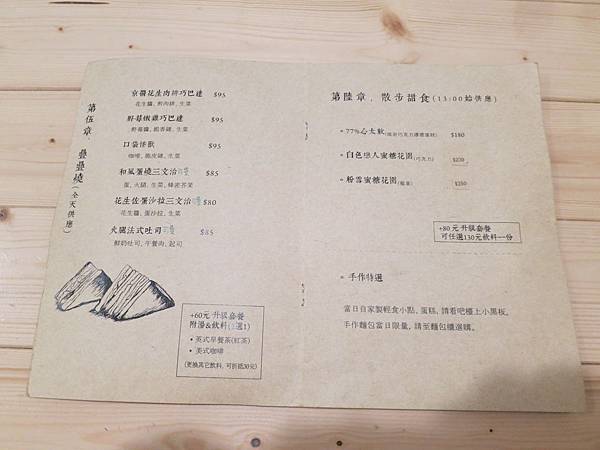 第伍章．疊疊燒(全天供應)
京醬花生肉排巧巴達 $95
花生醬, 煎肉排, 生菜
野莓嫩雞巧巴達 $95
野莓醬, 生菜
口袋怪獸 $95
咖哩, 脆皮雞, 生菜
和風蛋燒三文治 $85
蛋, 火腿, 生菜, 蜂蜜芥茉
花生佐蛋沙拉三文治 $80
花生醬, 蛋沙拉, 生菜
火腿法式吐司 $85
鮮奶吐司, 午餐肉, 起司
+60元 升級套餐
附湯&飲料(2選1)
• 英式早餐茶(紅茶)
• 美式咖啡
(更換其它飲料, 可折抵30元)
第陸章．散步甜食(13:00始供應)
77%心太軟 $180
白色戀人蜜糖花園(巧克力) $230
粉雪蜜糖花園 $250
+80 元 升級套餐
可任選130元飲料一份
手作特選
當日自家製輕食小點, 蛋糕, 請看吧檯上小黑板。
手作麵包當日限量, 請至麵包櫃選購。